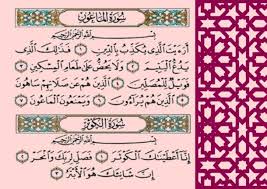 سُورَةُ الْمَاعُونِ
بِسْمِ اللَّهِ الرَّحْمَٰنِ الرَّحِيمِ
أَرَءَيْتَ الَّذِي يُكَذِّبُ بِالدِّينِ ۝١ فَذَٰلِكَ الَّذِي
يَدُعُّ الْيَتِيمَ ۝٢ وَلَا يَحُضُّ عَلَىٰ طَعَامِ الْمِسْكِينِ ۝٣
فَوَيْلٌ لِّلْمُصَلِّينَ ۝٤ الَّذِينَ هُمْ عَن صَلَاتِهِمْ سَاهُونَ
۝٥ الَّذِينَ هُمْ يُرَاءُونَ ۝٦ وَيَمْنَعُونَ الْمَاعُونَ ۝٧
سُورَةُ الْكَوْثَرِ
بِسْمِ اللَّهِ الرَّحْمَٰنِ الرَّحِيمِ
إِنَّا أَعْطَيْنَاكَ الْكَوْثَرَ ۝١ فَصَلِّ لِرَبِّكَ وَانْحَرْ ۝٢
إِنَّ شَانِئَكَ هُوَ الْأَبْتَرُ ۝٣